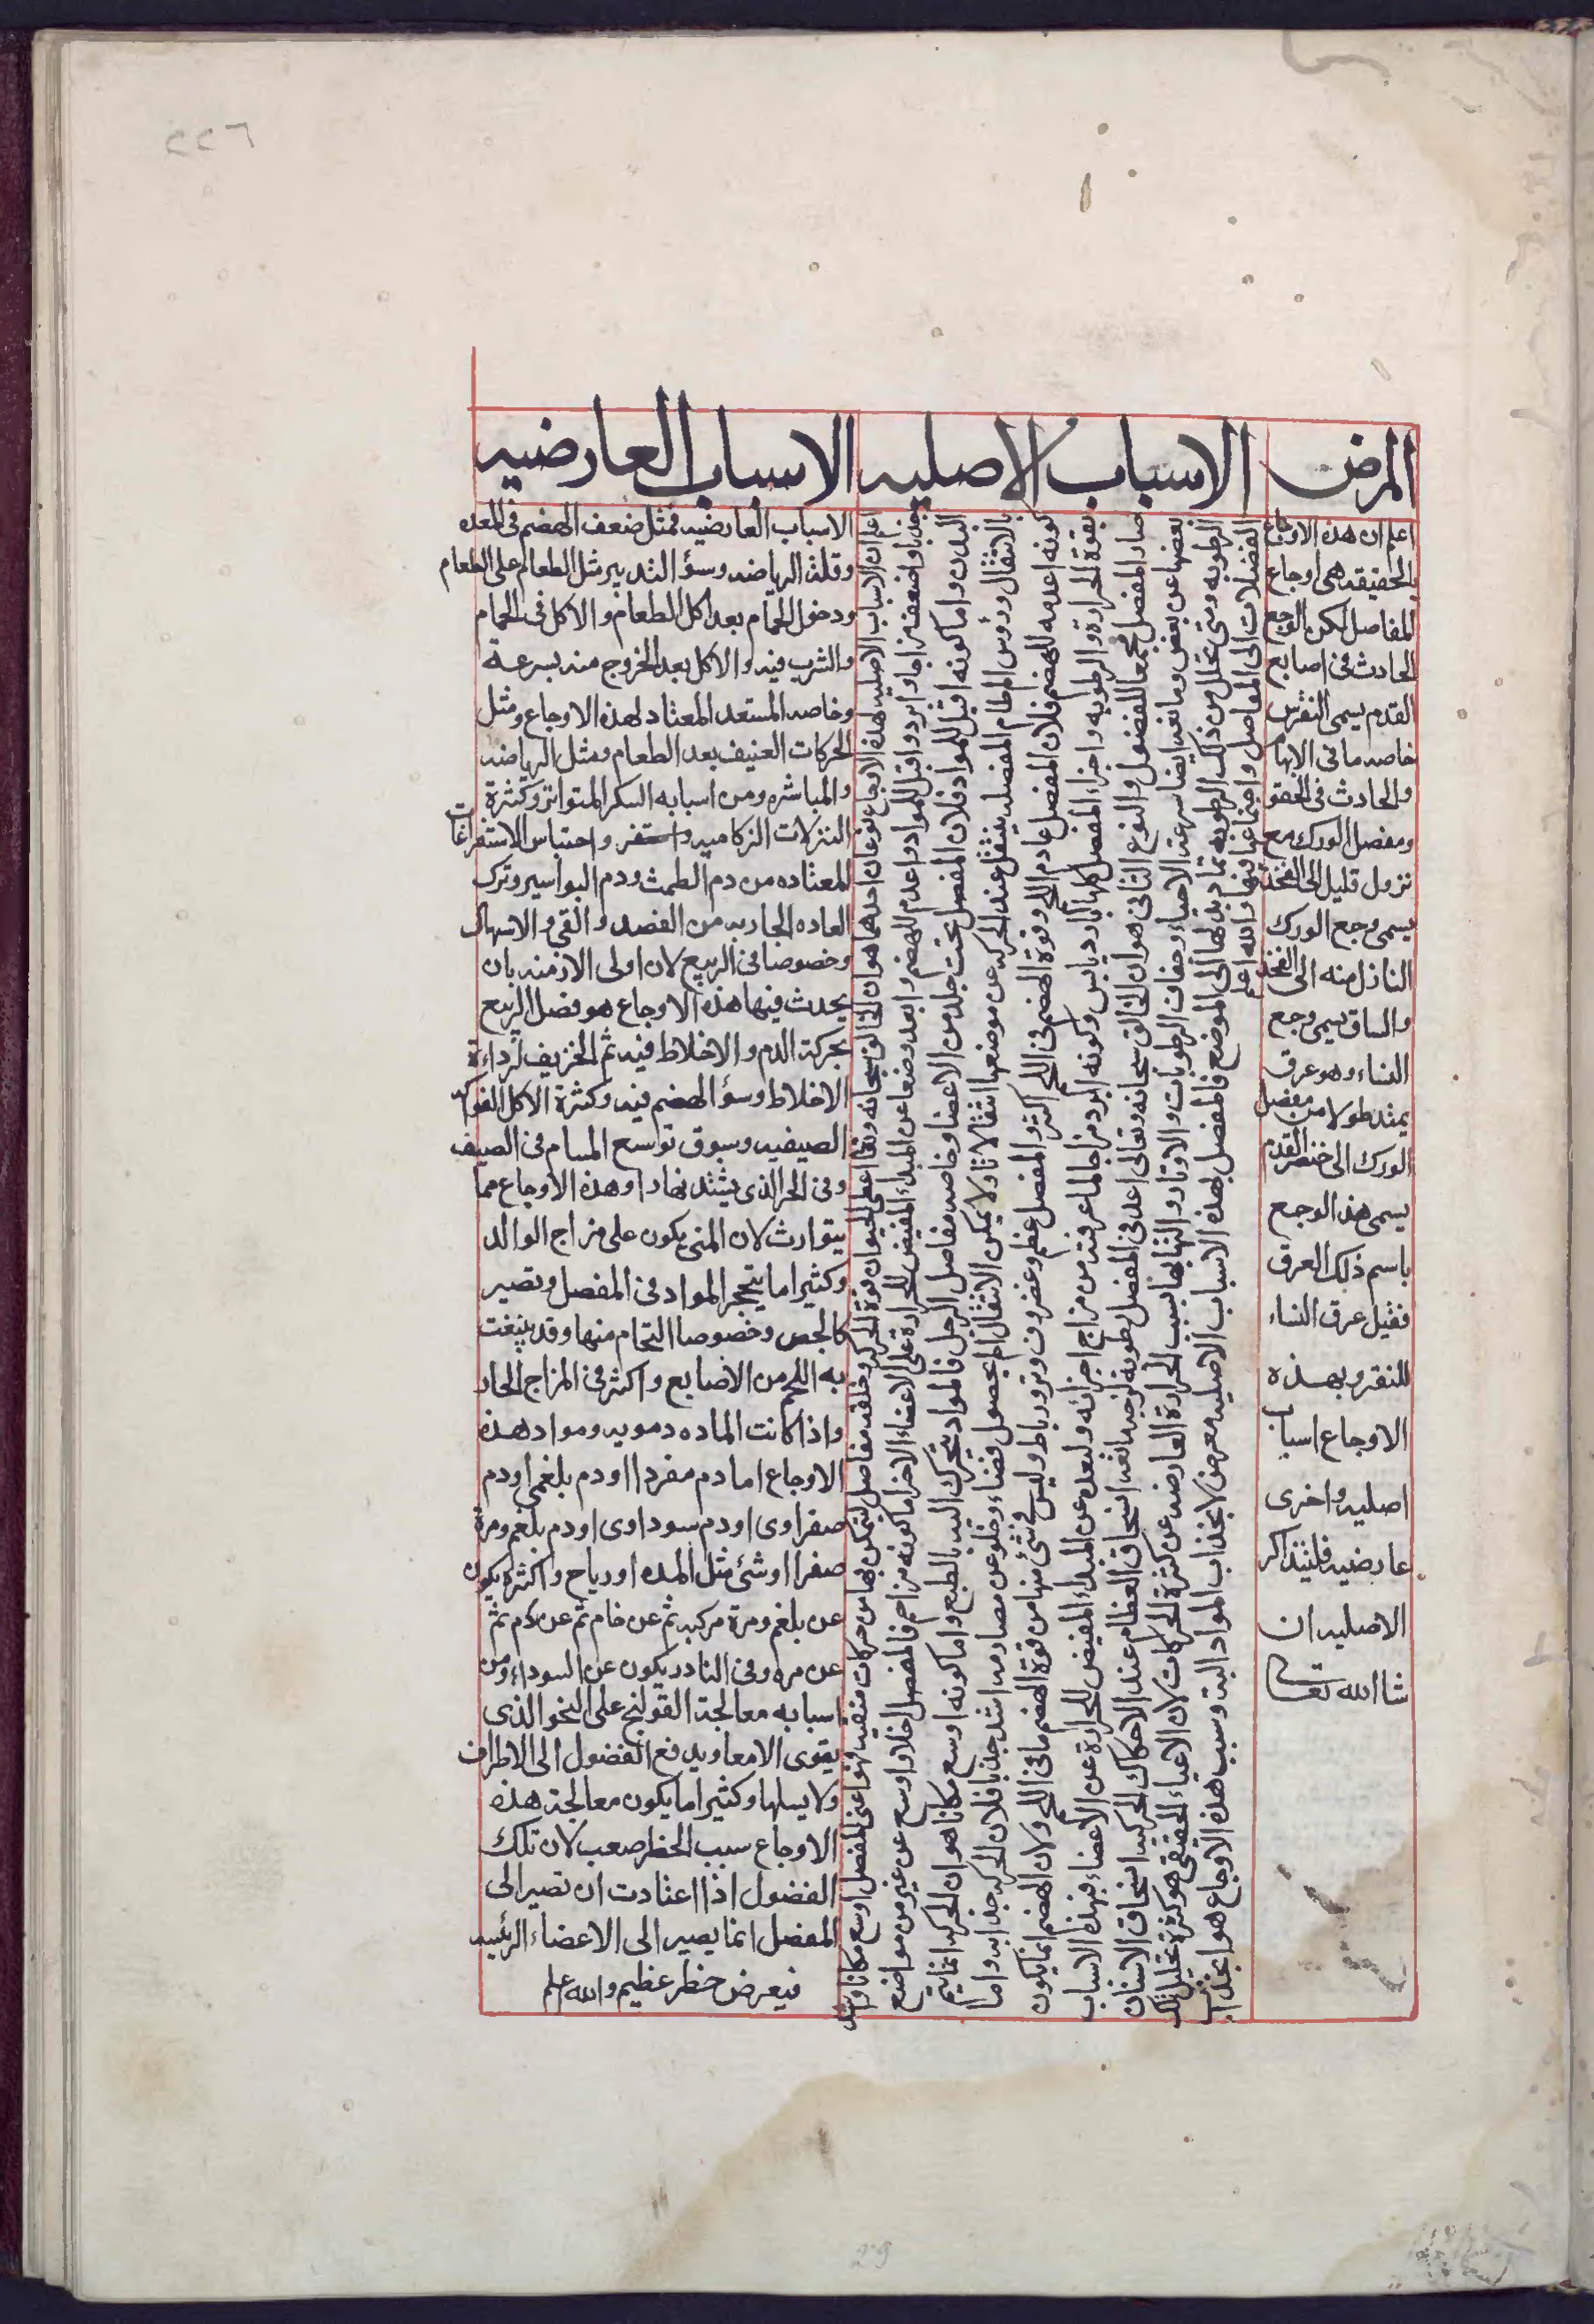 المرض
الاسباب الاصليه
الاسباب العارضيه
اعلم ان هذه الاوجاع
بالحقيقه هى اوجاع
المفاصل لكن الوجع
الحادث فى اصابع
القدم يسمى النقرس
خاصه ما فى الابهام
والحادث فى الحقو
ومفصل الورك مع
نزول قليل الى الفخذ
يسمى وجع الورك
النازل منه الى الفخذ
والساق يسمى وجع
النساء وهو عرق
يمتد طولا من مفصل
الورك الى خنصر القدم
يسمى هذ الوجع
باسم ذلك العرق
فقيل عرق النساء
للنقر وبهذه
الاوجاع اسبا
اصليه واخرى
عارضيه فلنتذاكر
الاصليه ان
شا الله تعالى
اعلم ان الاسباب الاصليه لهذه الاوجاع نوعان احدهما هو ان الخالق سبحانه وتعا اعطى الحيوان قوة الحركه وخلقه مفاصل ليتمكن بها من حركات متفنيه فهو اعنى المفصل اوسع مكانا واشد
جذبا واضعف مزاجا وابرد واقبل للمواد واعدم للهضم وابعد وضعا عن المبداء المفيض للحرارة على الاعضاء الاخر اما كونه مزاحم فالمفصل اخلا واوسع عن غيره من مواضع
البدن واما كونه اقبل للمواد فلان المفصل تحت جلد من الاعضا وخاصه مفاصل الرجل فالمواد يتحرك اليه بالطبع واما كونه اوسع مكانا هو ان الحركه انما يتم
بالانتقال ورؤس العظام المفصليه ينتقل عند الحركه عن موضعها انتقالا تاما ولا يمكن الانتقال الم بحصول فضاء وخلو عن مصادمه اشد جذبا فلان الحركه جذابه واما
كونه اعدمه للهضم فلان المفصل عادم اللحم وقوة الهضم فى اللحم اكثر والمفصل عظم وغضروف وتر ورباط وليس فى شئ منها من قوة الهضم ما فى اللحم ولان الهضم انما يكون
بقوة الحرارة والرطوبه واجزاء المفصل كلها بارد يابس وكونه ابرد مزاجا لما عرفته من مزاج اجزائه ولبعده عن المبداء المفيض للحرارة عن الاعضاء فبهذا الاسباب
صار المفصل مجمعا للفضول والنوع الثانى هو ان الخالق سبحانه وتعالى اعد فى المفصل رطوبة لزجيه مانعه انسحاق العظام عند الاحكاك الحركيه انسحاق الاسنان
بعضها عن بعض ومانعه ايضا سرعة الاحياء وجفاف الرطوبات والاوتار والتهابها بسبب الحرارة العارضه عن كثرة الحركات لان الاعياء الحقيقى هو كثرة تحليل تلك
الرطوبه ومتى تحلل من ذلك الرطوبه تماد بدلها الى الموضع فالمفصل بهذه الاسباب الاصليه معرض لانجذاب المواد اليه وسبب هذه الاوجاع هو انجذاب
الفضلات الى المفاصل واجتماعها فيها والله اعلم
الاسباب العارضيه فمثل ضعف الهضم فى المعده
وقلة الرياضه وسؤ التدبير مثل الطعام على الطعام
ودخول الحمّام بعد اكل الطعام والاكل فى الحمام
والشرب فيه والاكل بعد الخروج منه بسرعة
وخاصه المستعد المعتاد لهذه الاوجاع ومثل
الحركات العنيف بعد الطعام ومثل الرياضه
والمباشره ومن اسبابه السكر المتواتر وكثرة
النزلات الزكاميه واستفر واحتباس الاستفراغات
المعتاده من دم الطمث ودم البواسير وترك
العاده الجاريه من الفصد والقى والاسهال
وخصوصا فى الربيع لان اولى الازمنه بان
يحدث فيها هذه الاوجاع هو فصل الربيع
بحركة الدم والاخلاط فيه ثم الخريف لرداءة
الاخلاط وسؤ الهضم فيه وكثرة الاكل الفواكه
الصيفيه وسبوق توسع المسام فى الصيف
وفى الحر الذى يشتد نهارا وهذه الاوجاع مما
يتوارث لان المنى يكون على مزاج الوالد
وكثيرا ما يتحجر المواد فى المفصل وتصير
كالجص وخصوصا التحام منها وقد ينبغت
به اللحم من الاصابع واكثر فى المزاج الحار
واذا كانت الماده دمويه ومواد هذه
الاوجاع اما دم مفردا او دم بلغمى او دم
صفراوى او دم سوداوى او دم بلغم ومرة
صفرا او شئ مثل المده او رياح واكثره يكون
عن بلغم ومرة مركبه ثم عن خام ثم عن دم ثم
عن مره وفى النادر يكون عن السوداء ومن
اسبابه معالجة القولنج على النحو الذى
يقوى الامعا ويدفع الفضول الى الاطراف
ولا يسلها وكثيرا ما يكون معالجة هذه
الاوجاع سبب الخطر صعب لان تلك
الفضول اذا اعتادت ان تصير الى
المفصل انما يصير الى الاعضاء الرئيسه
فيعرض خطر عظيم والله اعلم
٢٢٦
29